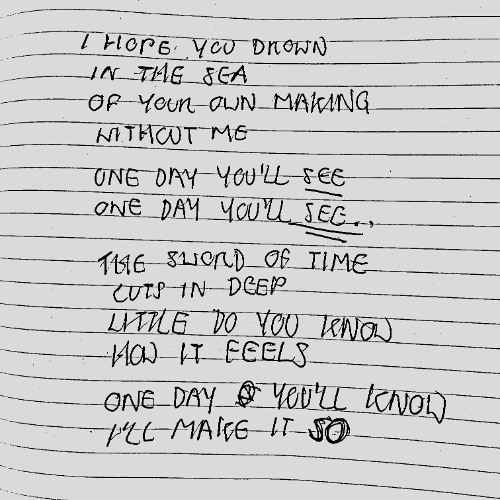 I HOPE YOU DROWN
IN THE SEA
OF YOUR OWN MAKING
WITHOUT ME
ONE DAY YOU'LL SEE
ONE DAY YOU'LL SEE...
THE SWORD OF TIME
CUTS IN DEEP
LITTLE DO YOU KNOW
HOW IT FEELS
ONE DAY YOU'LL KNOW
I'LL MAKE IT SO